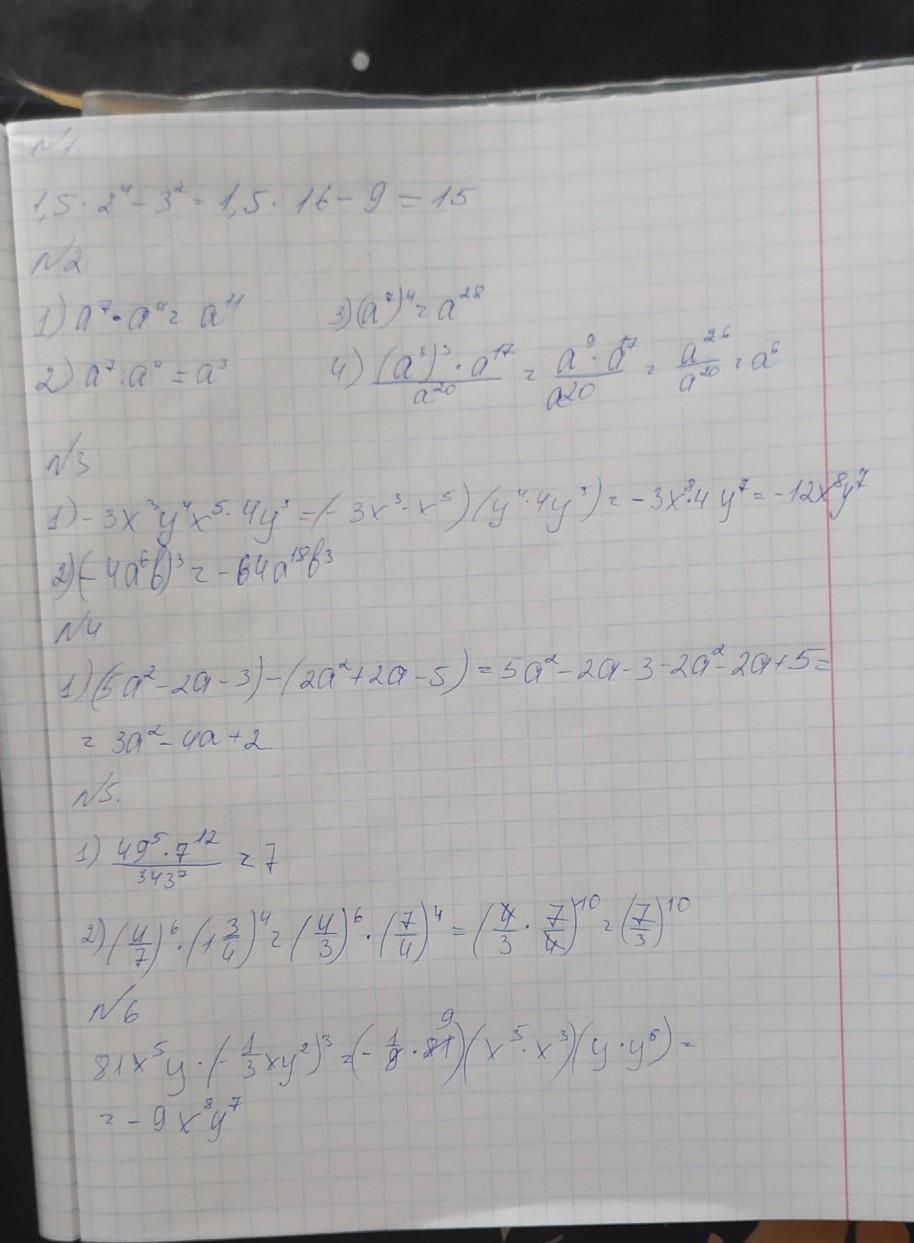 №1
1,5 · 2⁴ - 3² = 1,5 · 16 - 9 = 15
№2
1) a⁷ · a⁴ = a¹¹ 3) (a⁷)⁴ = a²⁸
2) a⁷ : a⁴ = a³ 4) (a³)³ · a¹⁷ / a²⁰ = a⁹ · a¹⁷ / a20 = a²⁶ / a²⁰ = a⁶
№3
1) - 3x³y⁴x⁵ · 4y³ = (- 3x³ · x⁵)(y⁴ · 4y³) = - 3x⁸ · 4 y⁷ = - 12x⁸y⁷
2) (- 4a⁶b)³ = - 64a¹⁸b³
№4
1) (5a² - 2a - 3) - (2a² + 2a - 5) = 5a² - 2a - 3 - 2a² - 2a + 5 =
= 3a² - 4a + 2
№5.
1) 49⁵ · 7¹² / 343⁷ = 7
2) (4/7)⁶ · (1 3/4)⁴ = (4/3)⁶ · (7/4)⁴ = (4/3 · 7/4)¹⁰ = (7/3)¹⁰
№6
81x⁵y · (- 1/3 xy²)³ = (- 1/9 · 81 9)(x⁵ · x³)(y · y⁶) =
= - 9x⁸y⁷